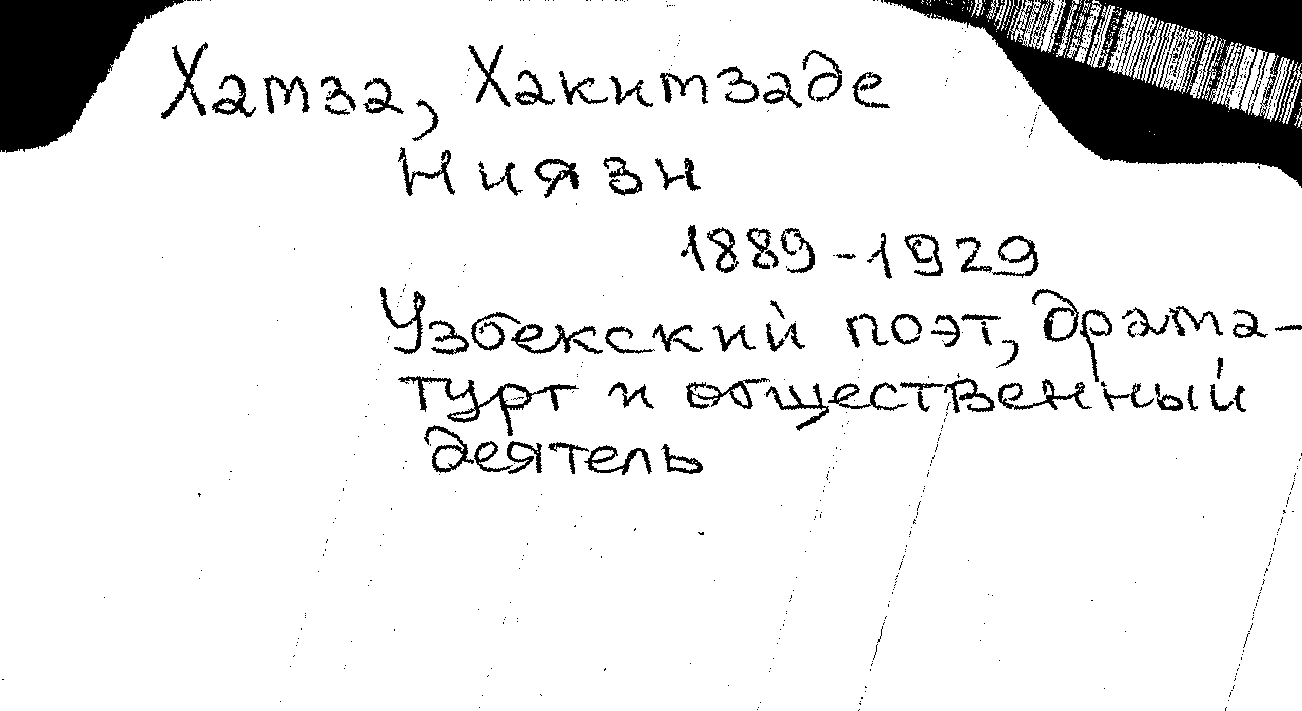 Хамза, Хакимзаде
Ниязи
1889-1929
Узбекский поэт, драма-
тург и общественный
деятель